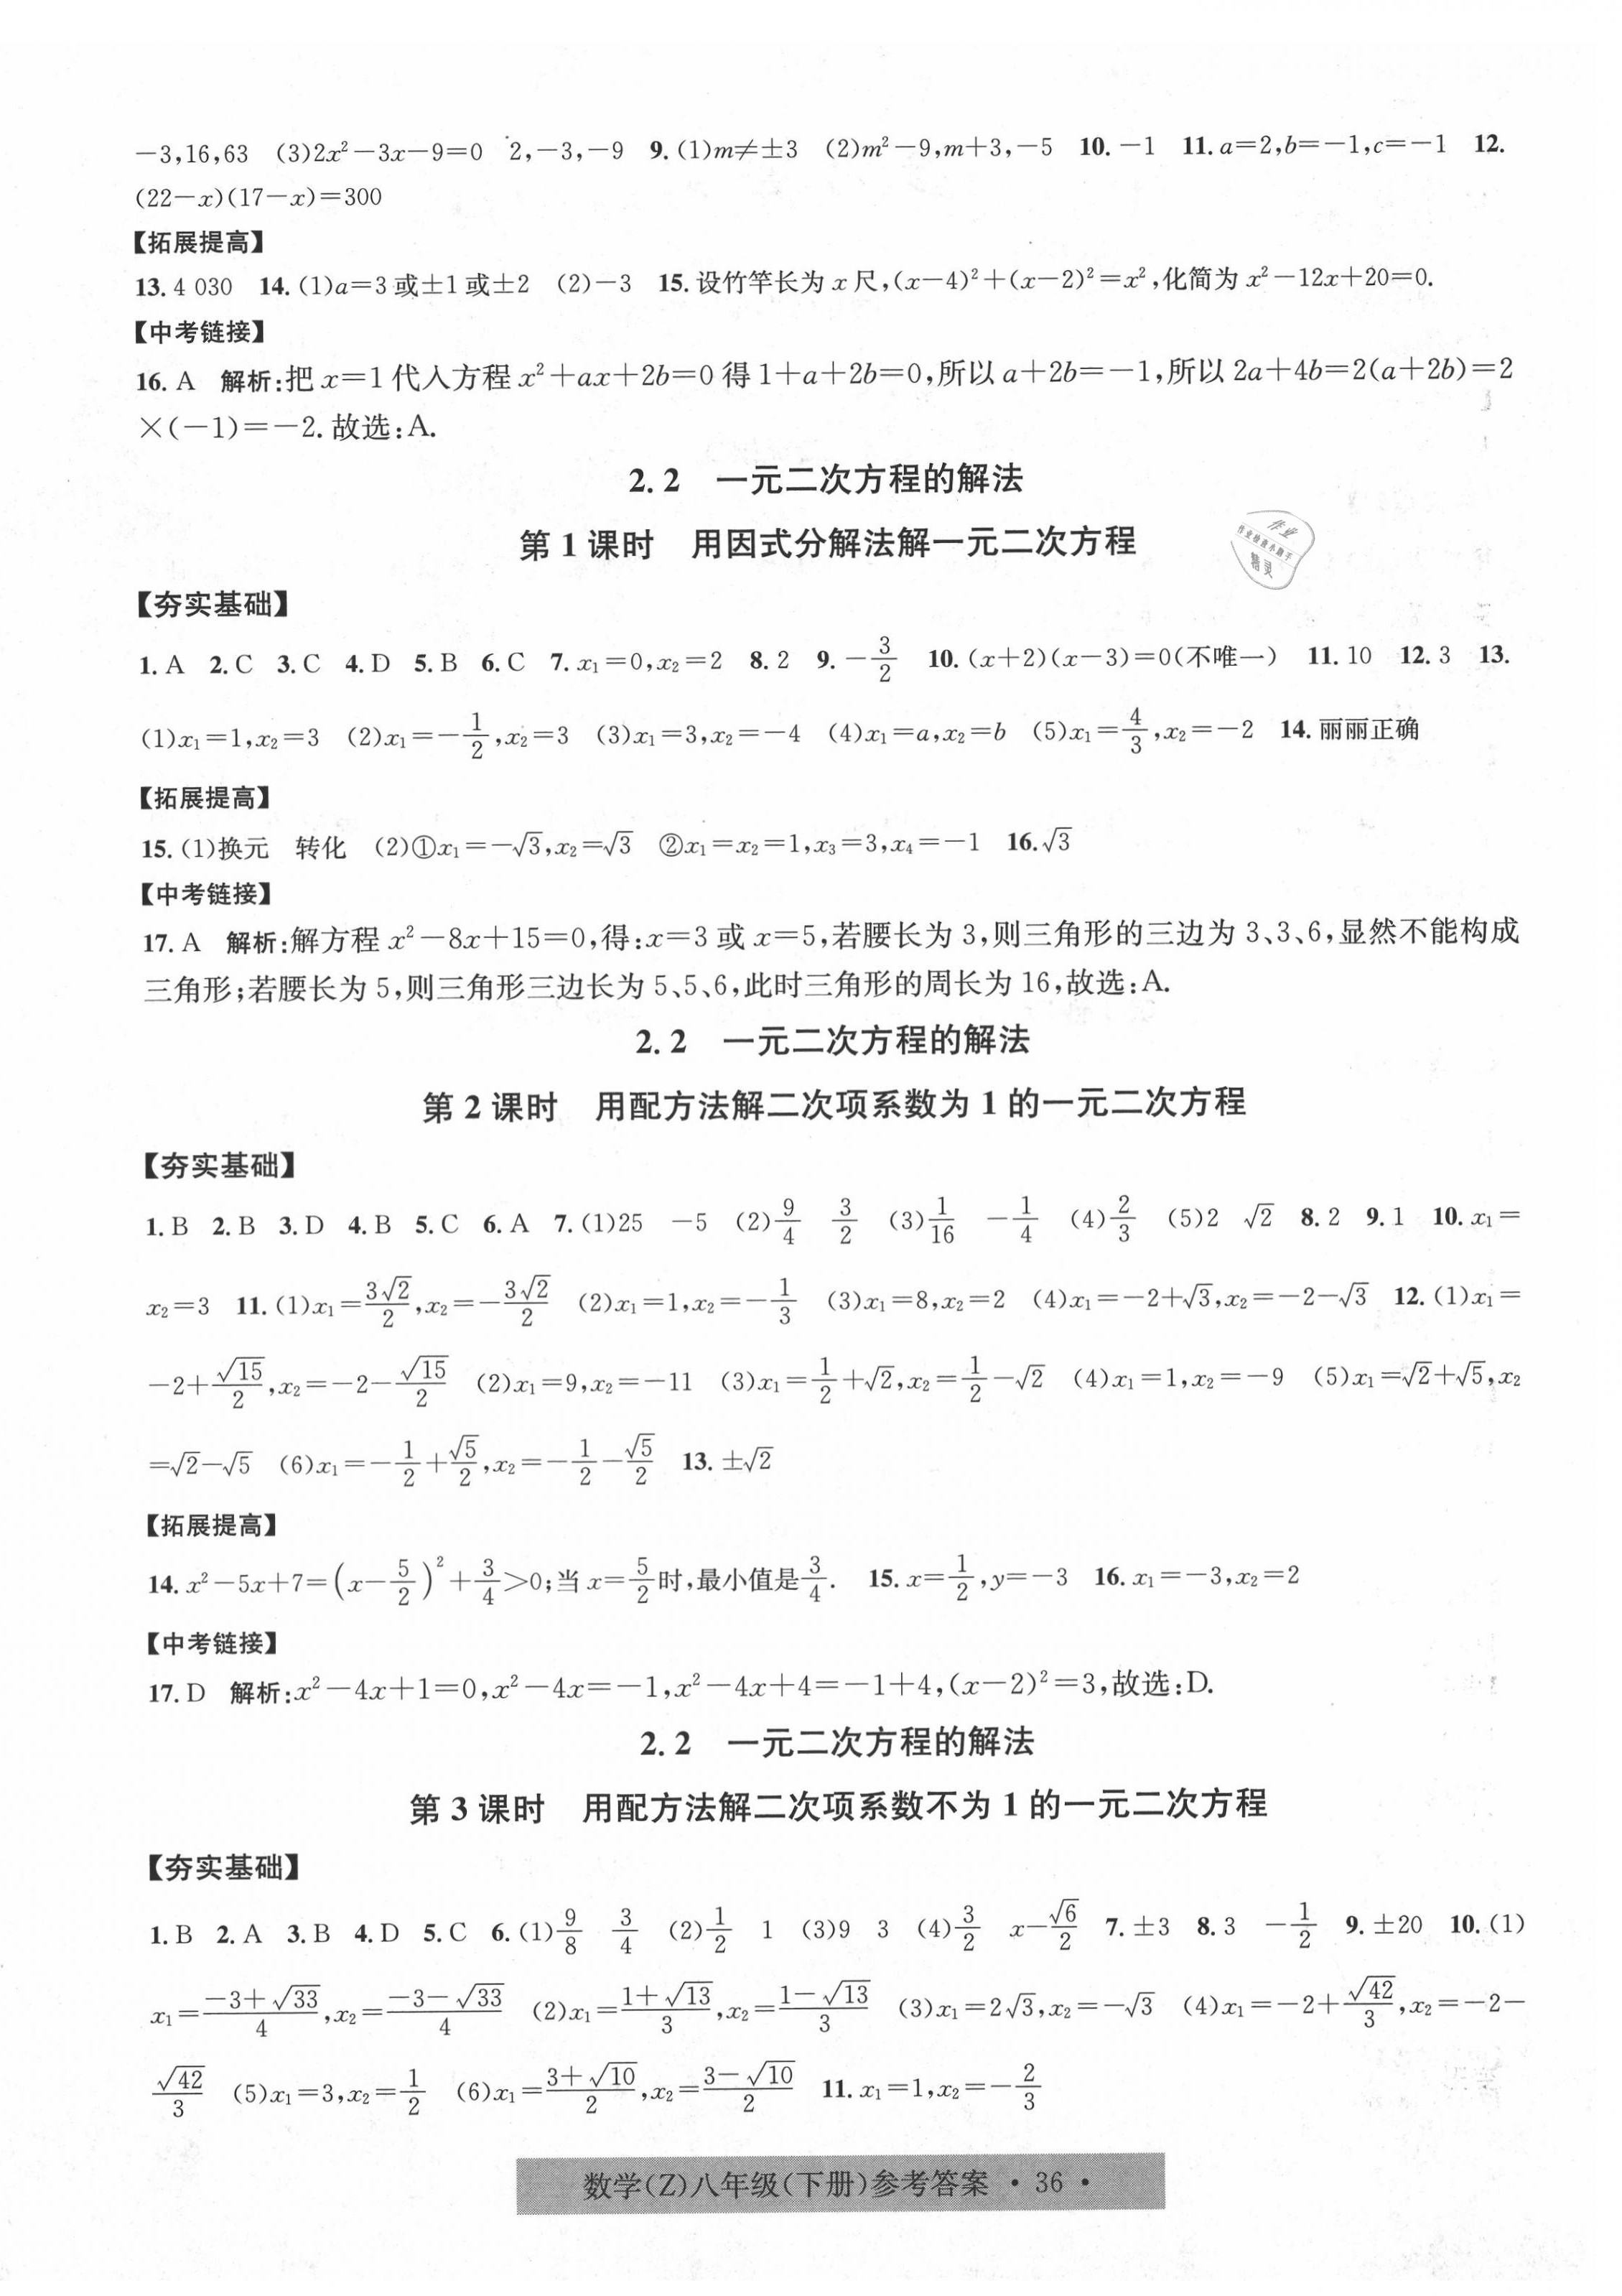 －3,16,63 (3)2x²－3x－9＝0 2,－3,－9 9.(1)m≠±3 (2)m²－9,m＋3,－5 10.－1 11.a＝2,b＝－1,c＝－1 12.
(22－x)(17－x)＝300
【拓展提高】
13.4 030 14.(1)a＝3或±1或±2 (2)－3 15.设竹竿长为x尺,(x－4)²＋(x－2)²＝x²,化简为x²－12x＋20＝0.
【中考链接】
16.A 解析:把x＝1代入方程x²＋ax＋2b＝0得1＋a＋2b＝0,所以a＋2b＝－1,所以2a＋4b＝2(a＋2b)＝2
×(－1)＝－2.故选:A.
2.2 一元二次方程的解法
第1课时 用因式分解法解一元二次方程
作业
作业检查小助手
精灵
【夯实基础】
1.A 2.C 3.C 4.D 5.B 6.C 7.x₁＝0,x₂＝2 8.2 9.－3/2 10.(x＋2)(x－3)＝0(不唯一) 11.10 12.3 13.
(1)x₁＝1,x₂＝3 (2)x₁＝－1/2,x₂＝3 (3)x₁＝3,x₂＝－4 (4)x₁＝a,x₂＝b (5)x₁＝4/3,x₂＝－2 14.丽丽正确
【拓展提高】
15.(1)换元 转化 (2)①x₁＝－√3,x₂＝√3 ②x₁＝x₂＝1,x₃＝3,x₄＝－1 16.√3
【中考链接】
17.A 解析:解方程x²－8x＋15＝0,得:x＝3或x＝5,若腰长为3,则三角形的三边为3、3、6,显然不能构成
三角形;若腰长为5,则三角形三边长为5、5、6,此时三角形的周长为16,故选:A.
2.2 一元二次方程的解法
第2课时 用配方法解二次项系数为1的一元二次方程
【夯实基础】
1.B 2.B 3.D 4.B 5.C 6.A 7.(1)25 －5 (2)9/4 3/2 (3)1/16 －1/4 (4)2/3 (5)2 √2 8.2 9.1 10.x₁＝
x₂＝3 11.(1)x₁＝3√2/2,x₂＝－3√2/2 (2)x₁＝1,x₂＝－1/3 (3)x₁＝8,x₂＝2 (4)x₁＝－2＋√3,x₂＝－2－√3 12.(1)x₁＝
－2＋√15/2,x₂＝－2－√15/2 (2)x₁＝9,x₂＝－11 (3)x₁＝1/2＋√2,x₂＝1/2－√2 (4)x₁＝1,x₂＝－9 (5)x₁＝√2＋√5,x₂
＝√2－√5 (6)x₁＝－1/2＋√5/2,x₂＝－1/2－√5/2 13.±√2
【拓展提高】
14.x²－5x＋7＝(x－5/2)²＋3/4＞0;当x＝5/2时,最小值是3/4. 15.x＝1/2,y＝－3 16.x₁＝－3,x₂＝2
【中考链接】
17.D 解析:x²－4x＋1＝0,x²－4x＝－1,x²－4x＋4＝－1＋4,(x－2)²＝3,故选:D.
2.2 一元二次方程的解法
第3课时 用配方法解二次项系数不为1的一元二次方程
【夯实基础】
1.B 2.A 3.B 4.D 5.C 6.(1)9/8 3/4 (2)1/2 1 (3)9 3 (4)3/2 x－√6/2 7.±3 8.3 －1/2 9.±20 10.(1)
x₁＝(－3＋√33)/4,x₂＝(－3－√33)/4 (2)x₁＝(1＋√13)/3,x₂＝(1－√13)/3 (3)x₁＝2√3,x₂＝－√3 (4)x₁＝－2＋√42/3,x₂＝－2－
√42/3 (5)x₁＝3,x₂＝1/2 (6)x₁＝(3＋√10)/2,x₂＝(3－√10)/2 11.x₁＝1,x₂＝－2/3
数学(Z)八年级(下册)参考答案 · 36 ·